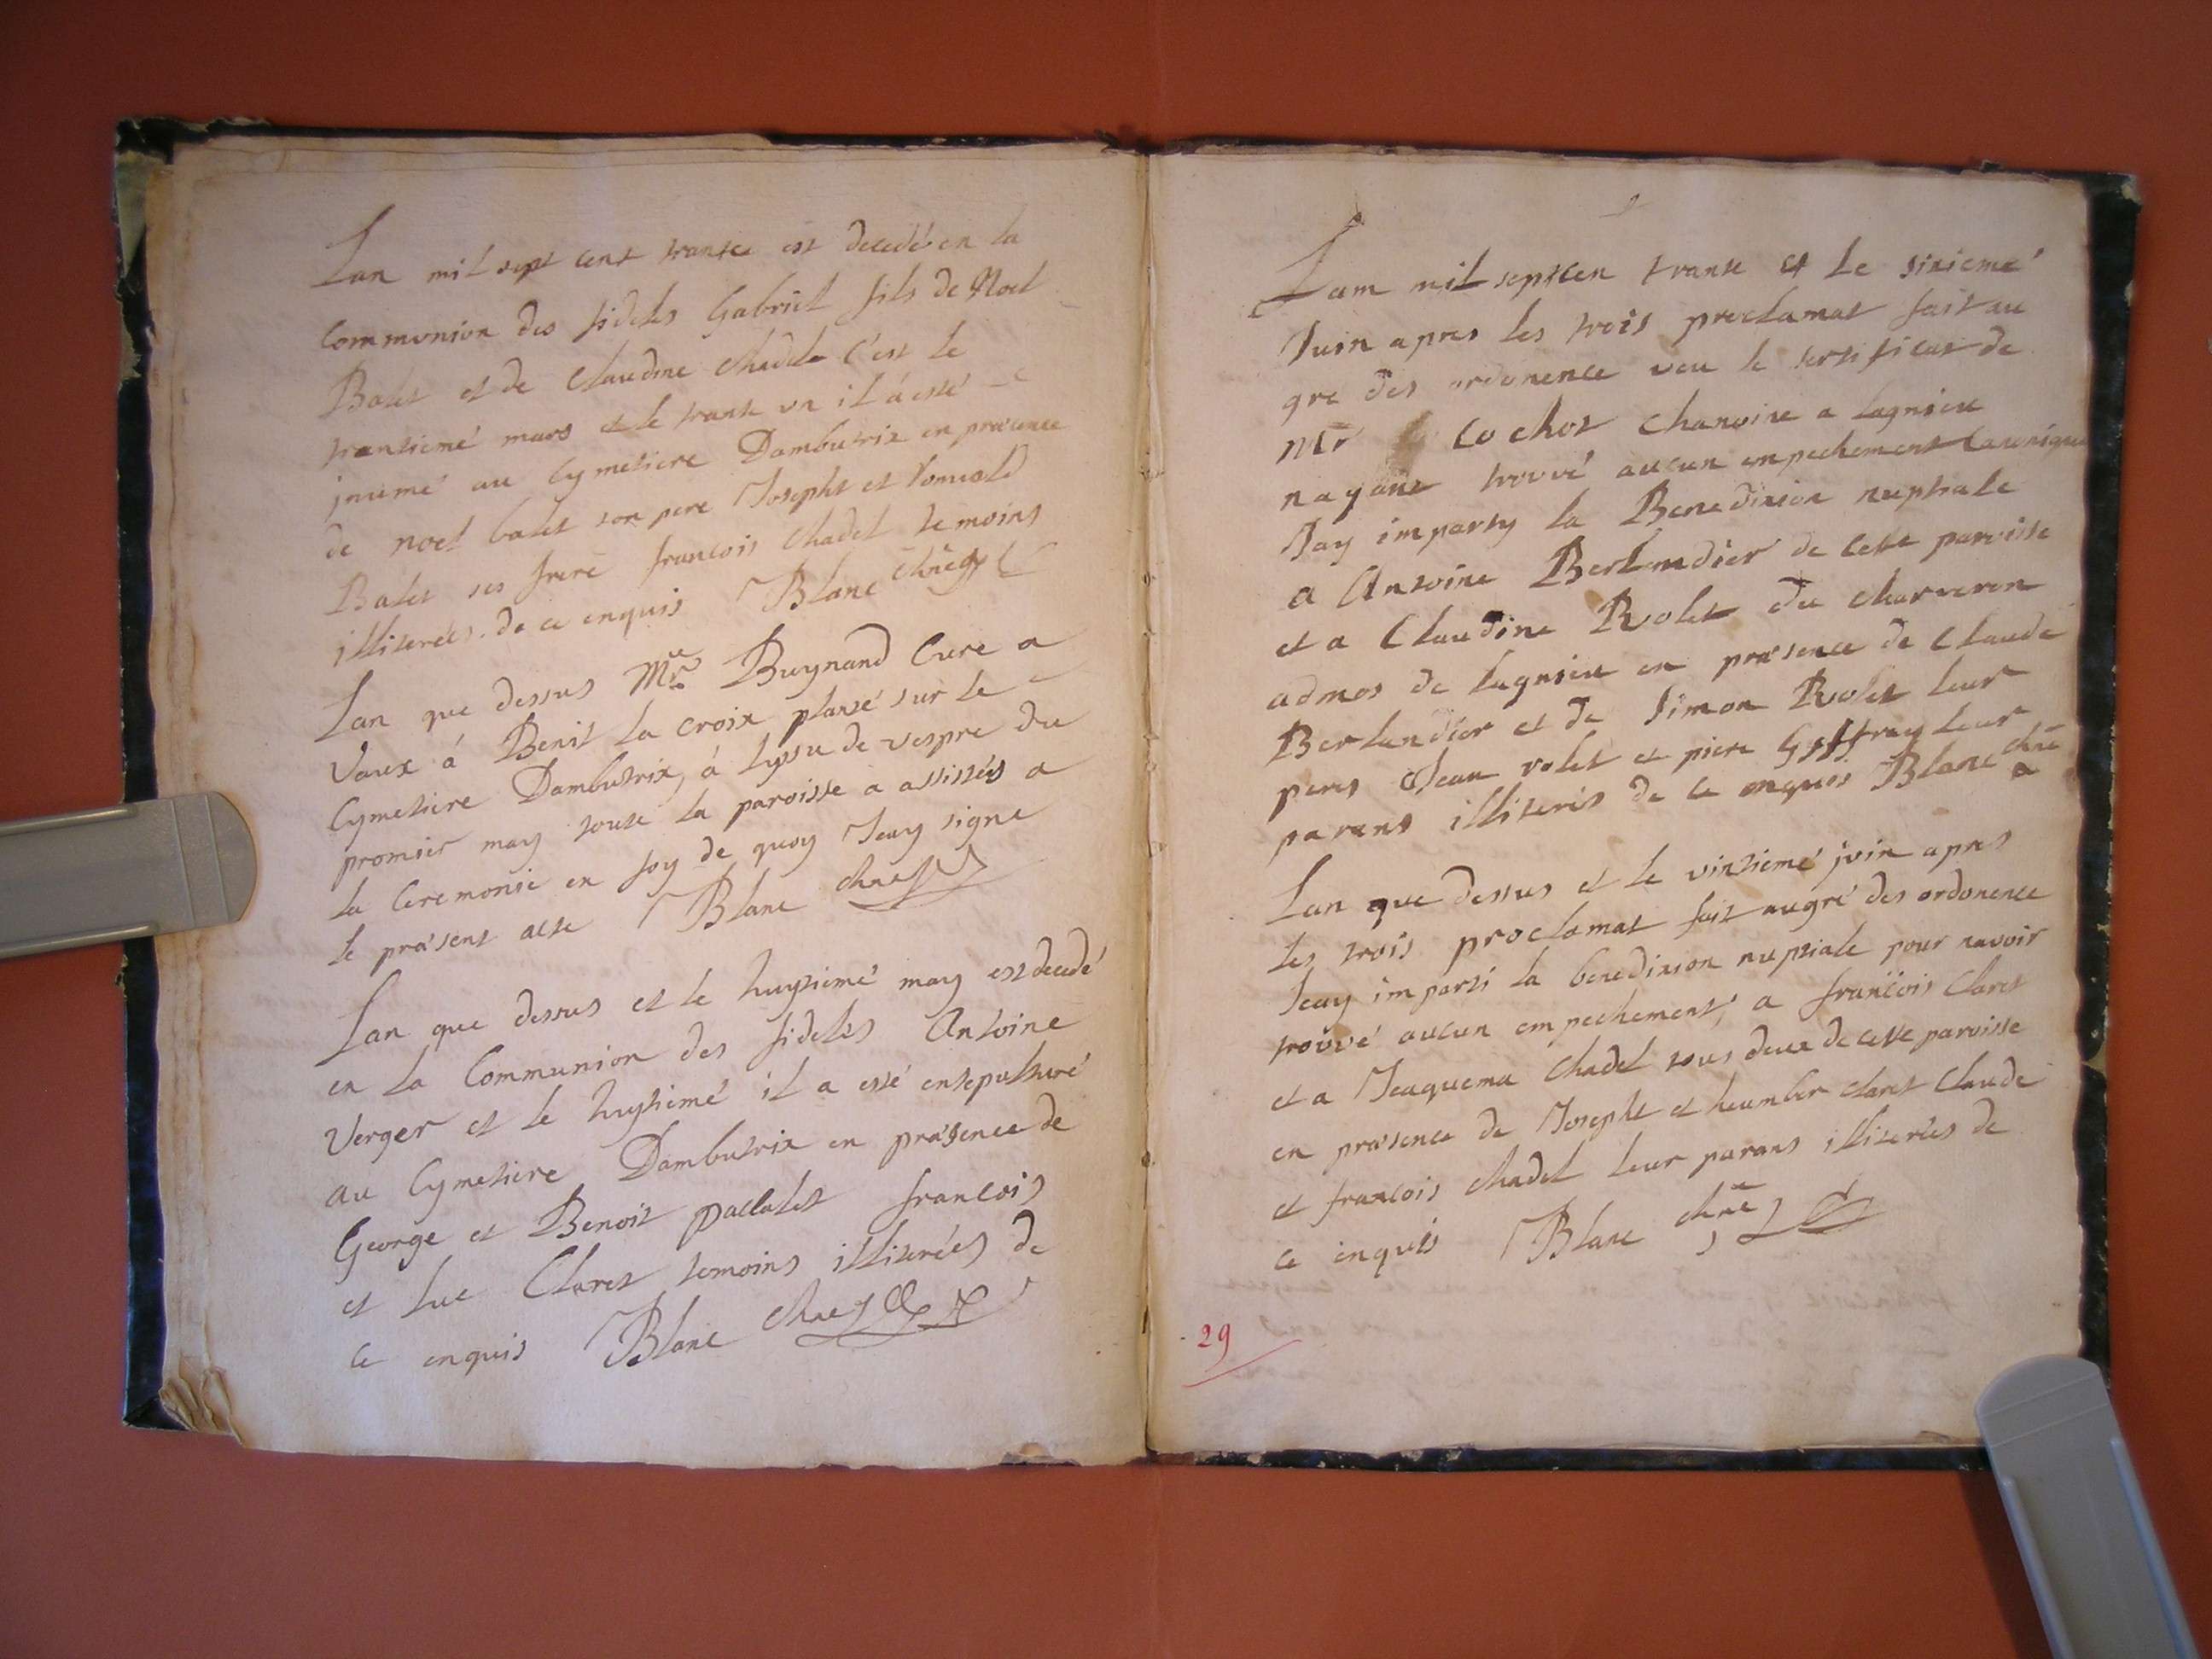 Lan mil sept cent trante est decedé en la
Communion des fideles Gabriel fils de Noel
Balet et de Claudine Chadel c'est le
trantiemé mars et le trante un il á esté
inumé au Cymetiere Dambutrix en præsence
de noel balet son pere Joseph et Romuald
Balet ses frere francois Chadel temoins
illiterées de ce enquis Blanc chne
Lan que dessus Mre Buynand Cure a
Vaux á Benit la croix planté sur le
Cymetiere Dambutrix, á lyssu de vespre du
promier may toute la paroisse a assistés a
la Ceremonie en foy de quoy Jeay signe
le præsent acte Blanc chne
Lan que dessus et le huytiemé may est decedé
en la Communion des fideles Antoine
Verger et le huytiemé il a esté ensepulturé
au Cymetiere Dambutrix en præsence de
George et Benoit pallatet francois
et luc Claret temoins illiterées de
ce enquis Blanc chne
Lam mil septcen trante et le sixiemé
Juin apres les trois proclamat fait au
gre des ordonence veu le sertificat de
Mr Cochot Chanoine a lagnieu
nayant trouvé aucun enpechement Canonique
Jay imparty la Benedixion nuptiale
a Antoine Berlandier de cette paroisse
et a Claudine Rolet du charveron
admos de lagnieu en præsence de Claude
Berlandier et de Simon Rolet leur
peres Jean rolet et piere Geffray leur
parans illiterés de ce enquis Blanc chne
Lan que dessus et le vintiemé juin apres
les trois proclamat fait augré des ordonence
Jeay imparti la benedixion nuptiale pour navoir
trouvé aucun empechement, a francois Claret
et a Jeaquema Chadel tous deux de cette paroisse
en præsence de Joseph et heumber claret Claude
et francois Chadel leur parans illiterées de
ce enquis Blanc chne
29